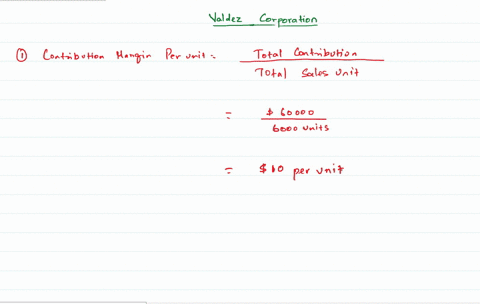 Valdez Corporation
① Contribution Margin Per unit = Total Contribution
Total Sales Unit
= $ 60000
6000 units
= $10 per unit